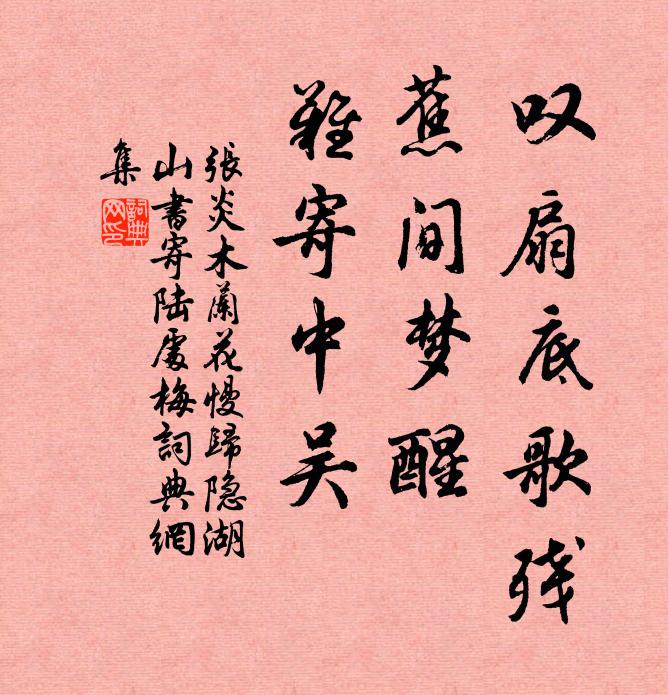 叹扇底歌残
蕉间梦醒
难寄中吴
張炎木蘭花慢歸隐湖
山書寄陆處梅詞典網
集
詞典網印